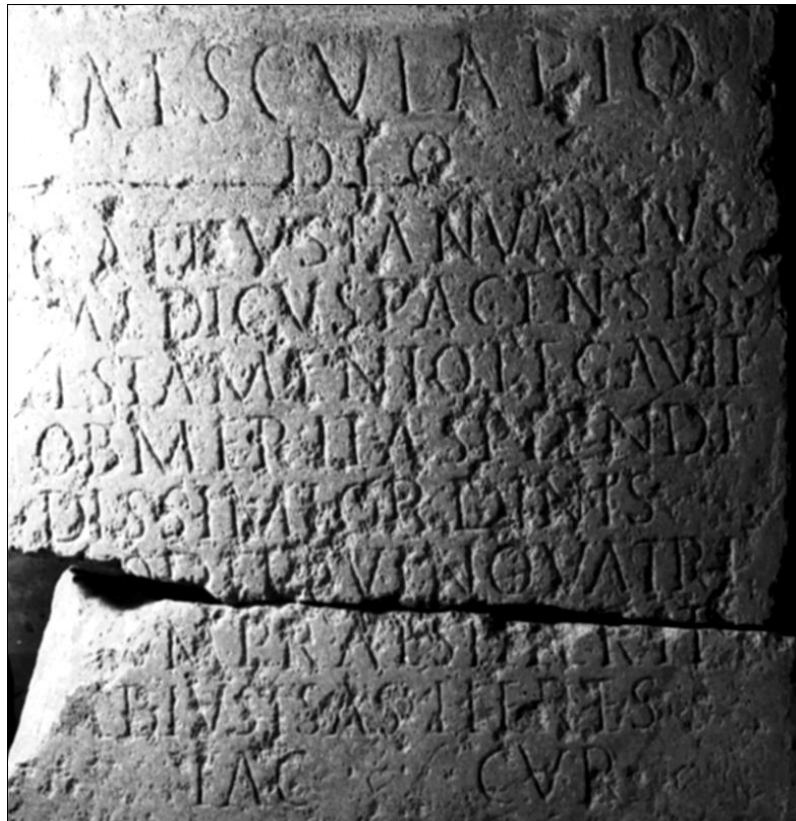 AESCVLAPIO
DEO
C ATTIVS IANVARIVS
MEDICVS PACENSIS
TESTAMENTO LEGAVIT
OB MERITA SPLENDI
DISSIMI ORDINIS
OD EI QVINQVATRI
M PRAESTITERIT
BIVS ISAS HERES
FAC CVR